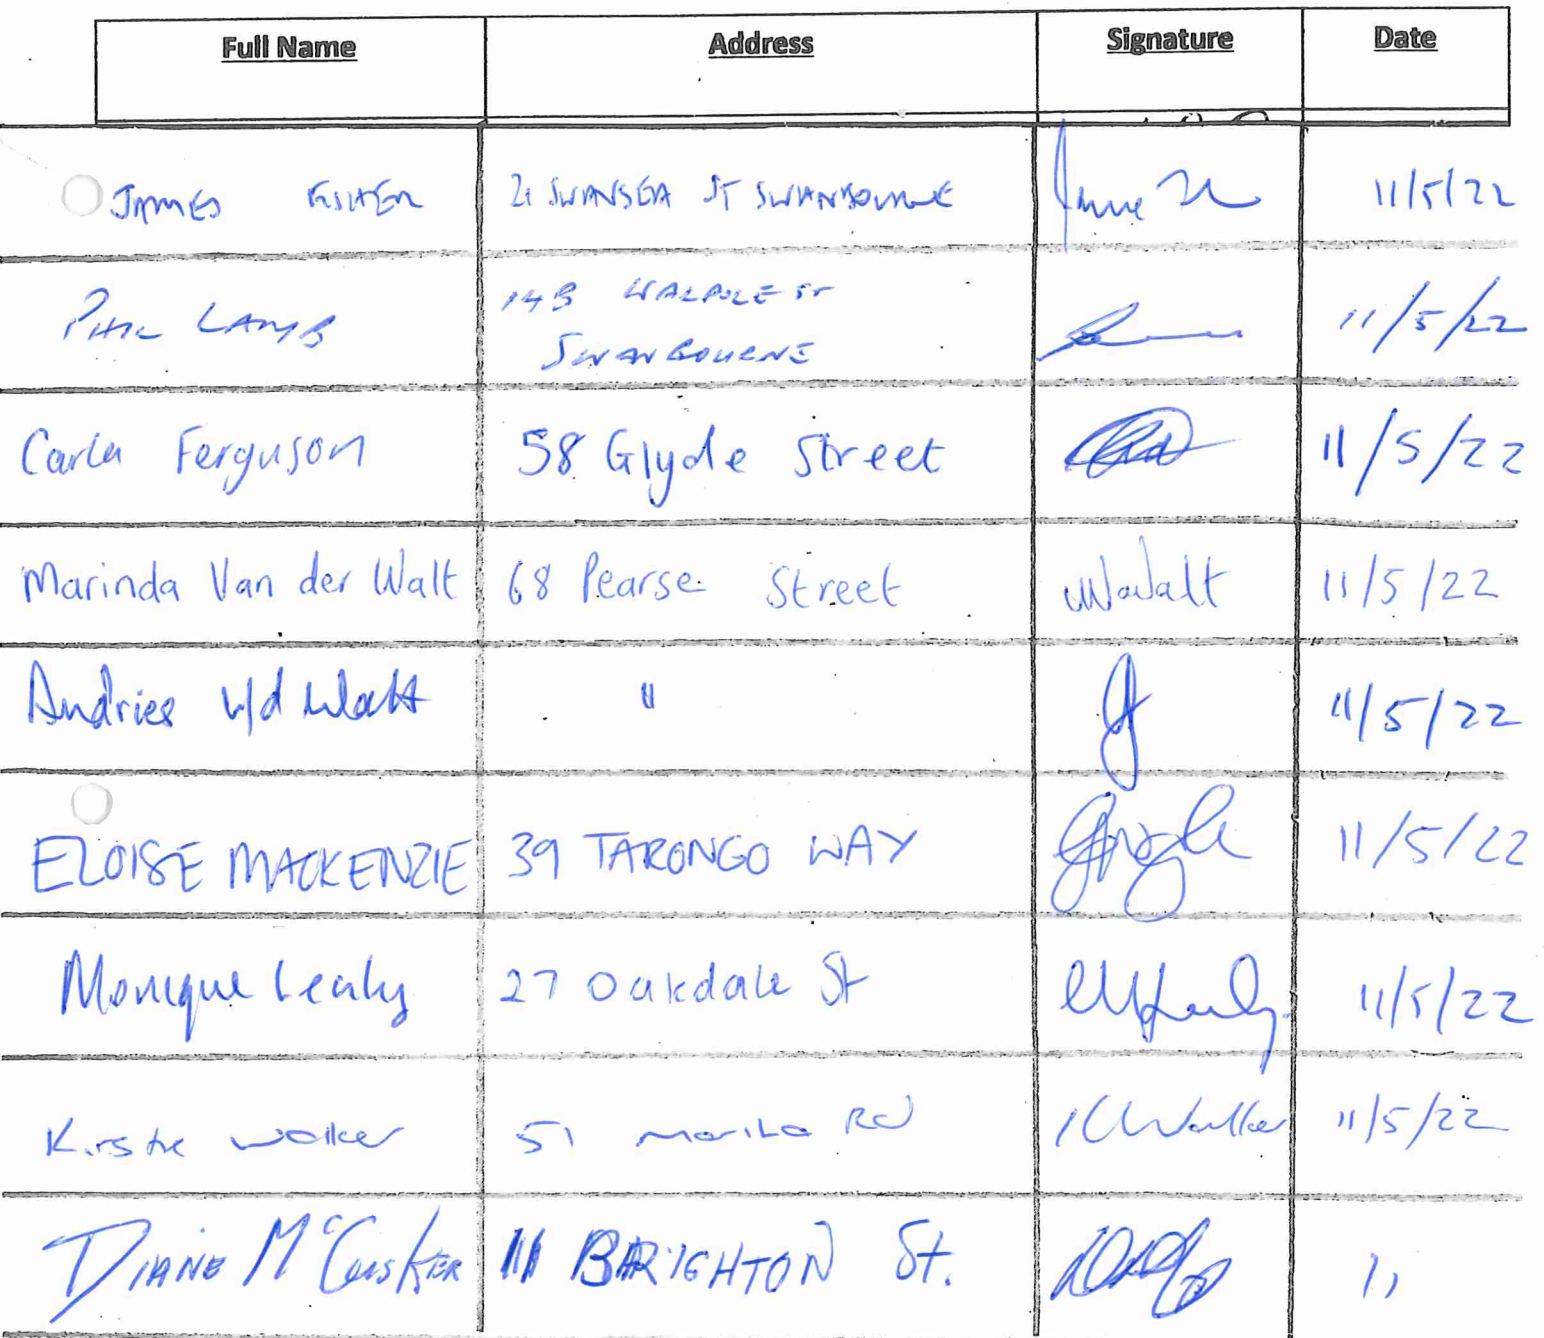 Full Name Address Signature Date
JAMES 21 SWANSEA ST SWANBOURNE 11/5/22
PHIL LAMB 14B WALPOLE ST 11/5/22
SWANBOURNE
Carla Ferguson 58 Glyde Street 11/5/22
Marinda Van der Walt 68 Pearse Street 11/5/22
Andries v/d Walt " 11/5/22
ELOISE MACKENZIE 39 TARONGO WAY 11/5/22
Monique Leahy 27 Oakdale St 11/5/22
Kirstie Walker 51 Marita Rd KWalker 11/5/22
DIANE McCUSKER 111 BRIGHTON St. "